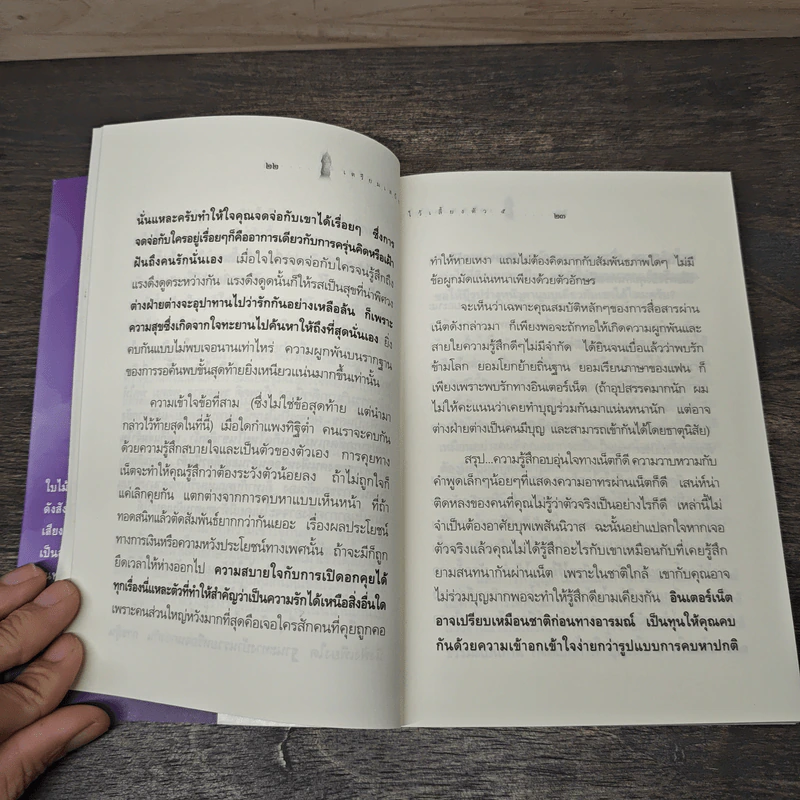 ๒๒
นั่นแหละครับทำให้ใจคุณจดจ่อกับเขาได้เรื่อยๆ ซึ่งการ
จดจ่อกับใครอยู่เรื่อยๆก็คืออาการเดียวกับการครุ่นคิดหรือเฝ้า
ฝันถึงคนรักนั่นเอง เมื่อใจใครจดจ่อกับใครจนรู้สึกถึง
แรงดึงดูดระหว่างกัน แรงดึงดูดนั้นก็ให้รสเป็นสุขที่น่าพิศวง
ต่างฝ่ายต่างจะอุปาทานไปว่ารักกันอย่างเหลือล้น ก็เพราะ
ความสุขซึ่งเกิดจากใจทะยานไปค้นหาให้ถึงที่สุดนั่นเอง ยิ่ง
คบกันแบบไม่พบเจอนานเท่าไหร่ ความผูกพันบนรากฐาน
ของการรอค้นพบขั้นสุดท้ายยิ่งเหนียวแน่นมากขึ้นเท่านั้น
ความเข้าใจข้อที่สาม (ซึ่งไม่ใช่ข้อสุดท้าย แต่นำมา
กล่าวไว้ท้ายสุดในที่นี้) เมื่อใดกำแพงทิฐิต่ำ คนเราจะคบกัน
ด้วยความรู้สึกสบายใจและเป็นตัวของตัวเอง การคุยทาง
เน็ตจะทำให้คุณรู้สึกว่าต้องระวังตัวน้อยลง ถ้าไม่ถูกใจก็
แค่เลิกคุยกัน แตกต่างจากการคบหาแบบเห็นหน้า ที่ถ้า
ทอดสนิทแล้วตัดสัมพันธ์ยากกว่ากันเยอะ เรื่องผลประโยชน์
ทางการเงินหรือความหวังประโยชน์ทางเพศนั้น ถ้าจะมีก็ถูก
ยืดเวลาให้ห่างออกไป ความสบายใจกับการเปิดอกคุยได้
ทุกเรื่องนี่แหละตัวที่ทำให้สำคัญว่าเป็นความรักได้เหนือสิ่งอื่นใด
เพราะคนส่วนใหญ่หวังมากที่สุดคือเจอใครสักคนที่คุยถูกคอ
๒๓
ทำให้หายเหงา แถมไม่ต้องคิดมากกับสัมพันธภาพใดๆ ไม่มี
ข้อผูกมัดแน่นหนาเพียงด้วยตัวอักษร
จะเห็นว่าเฉพาะคุณสมบัติหลักๆของการสื่อสารผ่าน
เน็ตดังกล่าวมา ก็เพียงพอจะถักทอให้เกิดความผูกพันและ
สายใยความรู้สึกดีๆไม่มีจำกัด ได้ยินจนเบื่อแล้วว่าพบรัก
ข้ามโลก ยอมโยกย้ายถิ่นฐาน ยอมเรียนภาษาของแฟน ก็
เพียงเพราะพบรักทางอินเตอร์เน็ต (ถ้าอุปสรรคมากนัก ผม
ไม่ให้คะแนนว่าเคยทำบุญร่วมกันมาแน่นหนานัก แต่อาจ
ต่างฝ่ายต่างเป็นคนมีบุญ และสามารถเข้ากันได้โดยธาตุนิสัย)
สรุป...ความรู้สึกอบอุ่นใจทางเน็ตก็ดี ความวาบหวามกับ
คำพูดเล็กๆน้อยๆที่แสดงความอาทรผ่านเน็ตก็ดี เสน่ห์น่า
ติดหลงของคนที่คุณไม่รู้ว่าตัวจริงเป็นอย่างไรก็ดี เหล่านี้ไม่
จำเป็นต้องอาศัยบุพเพสันนิวาส ฉะนั้นอย่าแปลกใจหากเจอ
ตัวจริงแล้วคุณไม่ได้รู้สึกอะไรกับเขาเหมือนกับที่เคยรู้สึก
ยามสนทนากันผ่านเน็ต เพราะในชาติใกล้ เขากับคุณอาจ
ไม่ร่วมบุญมากพอจะทำให้รู้สึกดียามเคียงกัน อินเตอร์เน็ต
อาจเปรียบเหมือนชาติก่อนทางอารมณ์ เป็นทุนให้คุณคบ
กันด้วยความเข้าอกเข้าใจง่ายกว่ารูปแบบการคบหาปกติ